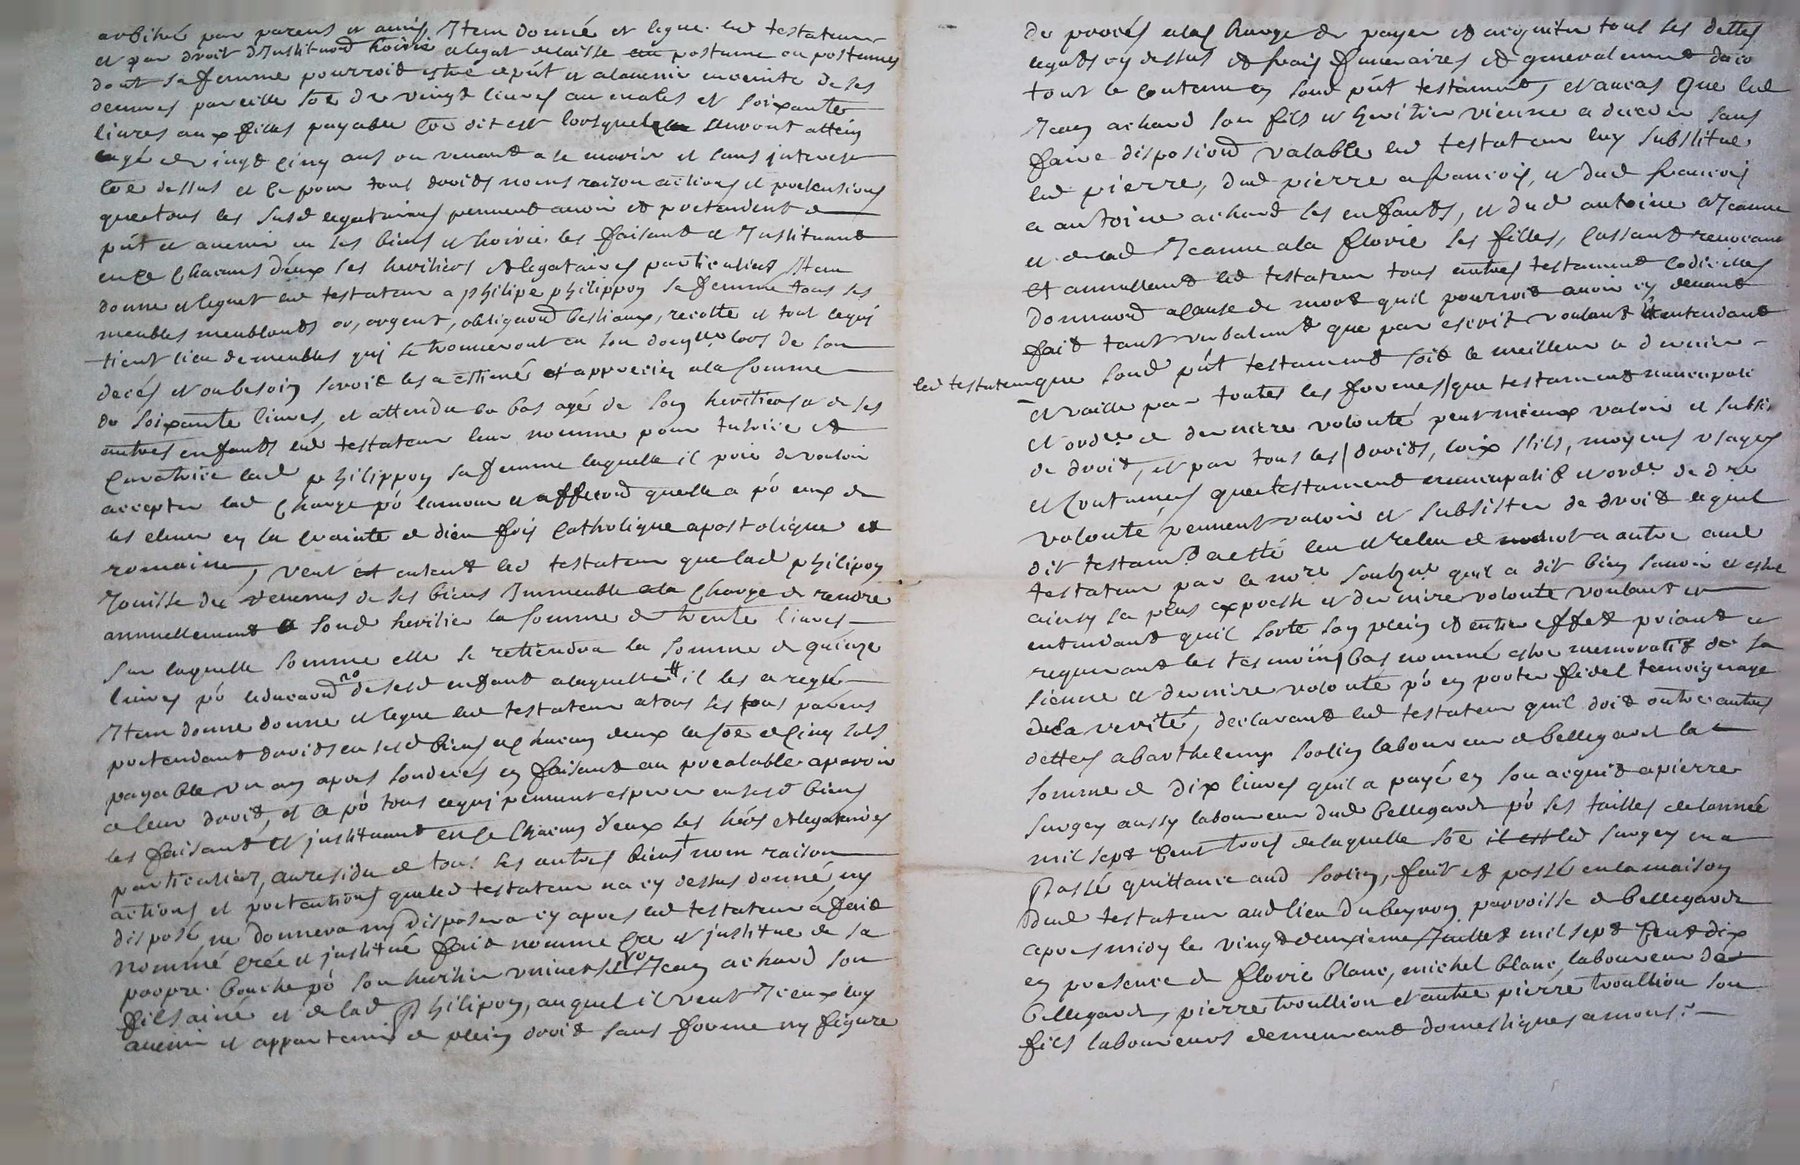 arbitré par parens et amis, Item donne et legue led testateur
et par droit d'Institu͠on hoirie et legat delaisse au postume ou postumes
dont sa femme pourroit estre a p͠nt et a lavenir enceinte de ses
oeuvres pareille so͠e de vingt livres au males et soixante
livres aux filles payable co͠e dit est lorsquels auront attein
lagé de vingt cinq ans ou venant a se marier et sans interest
co͠e dessus et ce pour tous droits noms raison actions et pretensions
que tous les susd legataires peuvent avoir et pretendent a
p͠nt et avenir en ses biens et hoirie les faisant et Instituant
en ce chacuns d'eux ses heritiers et legataires particuliers Item
donne et legue led testateur a philipe philippon sa femme tous ses
meubles meublants or, argent, obliga͠ons bestiaux, recolte et tout ce qui
tient lieu de meubles qui se trouveront en son domaine lors de son
decés et au besoin seroit les a estimé et apprecier a la somme
de soixante livres, et attendu le bas agé de son heritier et de ses
autres enfants led testateur leur nomme pour tutrice et
curatrice lad philippon sa femme laquelle il prie de vouloir
accepter lad charge po͠ lamour et affection quelle a po͠ eux de
les elever en la crainte de dieu foix catholique apostolique et
romaine, veut et entend led testateur que lad philipon
Jouisse des revenus de ses biens Immeuble a la charge de rendre
annuellement a sond heritier la somme de trente livres
sur laquelle somme elle se retiendra la somme de quinze
livres po͠ leduca͠on de sesd enfant a laquelle il les a reglé
Item donne donne et legue led testateur a tous ses tous parens
pretendant droits en sesd biens a chacun deux la so͠e de cinq sols
payable un an apres son decés en faisant au prealable aparoir
de leur droit, et ce po͠ tous ce qui peuvent esperer en sesd biens
les faisant et instituant en ce chacun d'eux ses héés et legataires
particulier, au residu de tous ses autres biens nom raison
actions et pretentions que led testateur na cy dessus donné ny
disposé, ne donnera ny disposera cy apres led testateur a fait
nommé créé et institué fait nomme cree et institue de sa
propre bouche po͠ son heritier universel Jean achard son
fils ainé et de lad Philipon, auquel il veut Iceux luy
avenir et appartenir de plein droit sans forme ny figure
de procés a la charge de payer et acquitter tous ses dettes
legats cy dessus et frais funeraires et generalement de
tout le contenu en sond p͠nt testament, et au cas que led
Jean achard son fils et heritier vienne a deceder sans
faire disposi͠on valable led testateur luy substitue
led pierre, dud pierre a francois, et dud francois
a antoine achard ses enfants, et dud antoine a Jeanne
et de lad Jeanne a la florie ses filles, cassant revocant
et annullant led testateur tous autres testament codicilles
donna͠on a cause de mort quil pourroit avoir cy devant
fait tant verbalement que par escrit voulant et entendant
led testateur que sond p͠nt testament soit le meilleur et dernier
et vaille par toutes les formes que testament nuncupatif
et ord͠re et derniere volonté peut mieux valoir et subsister
de droit, et par tous les droits, loix stils, moyens usages
et coutumes que testament nuncupatif et ord͠re de d͠re
volonté peuvent valoir et subsister de droit lequel
dit testam͠t a etté leu et releu de mot a autre aud
testateur par le no͠re soubz͠ne quil a dit bien scavoir et estre
ainsy sa plus expresse et derniere volonté voulant et
entendant quil sorte son plein et entier effet priant et
requerant les tesmoins bas nommé estre memoratif de sa
sienne et derniere volonté po͠ en porter fidel temoignage
de la verité, declarant led testateur quil doit outre autres
dettes a barthelemy soolin laboureur de bellegarde la
somme de dix livres quil a payé en son acquit a pierre
surgey aussy laboureur dud bellegarde po͠ ses tailles de lannée
mil sept cent trois de laquelle so͠e il est led surgey en a
Passé quittance aud soolin, fait et passé en la maison
dud testateur aud lieu du beyron parroisse de bellegarde
apres midy le vingt deuxieme Juillet mil sept cent dix
en presence de florie blanc, michel blanc, laboureur de
bellegarde, pierre troullion et autre pierre troullion son
fils laboureurs demeurant domestiques a mons.r